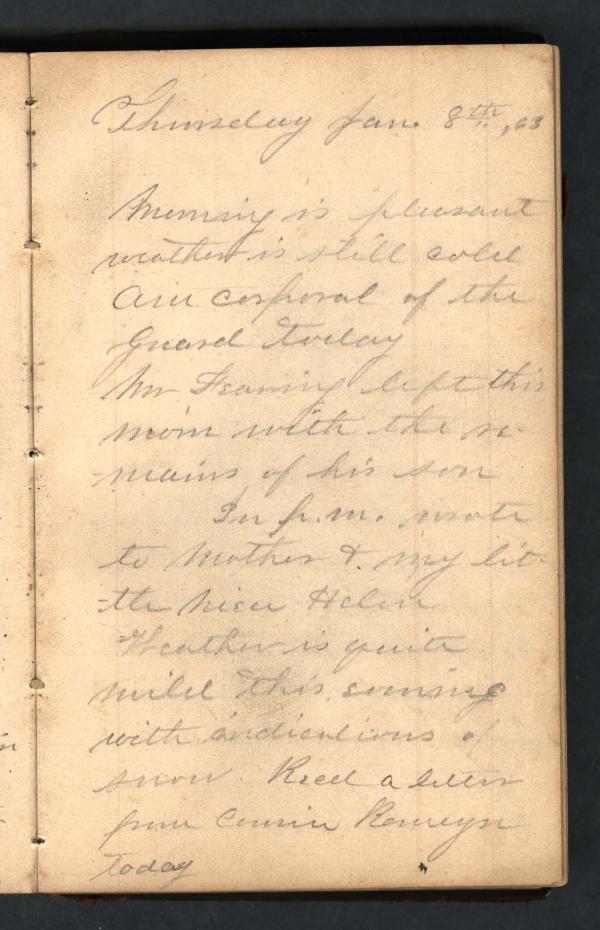 Thursday Jan. 8th, 63
Morning is pleasant
weather is still cold
Am corporal of the
Guard today
Mr left this
morn with the re-
-mains of his son
In p.m. wrote
to Mother & my lit-
-tle niece Helen
Weather is quite
mild this evening
with indications of
snow. Recd a letter
from Cousin
today